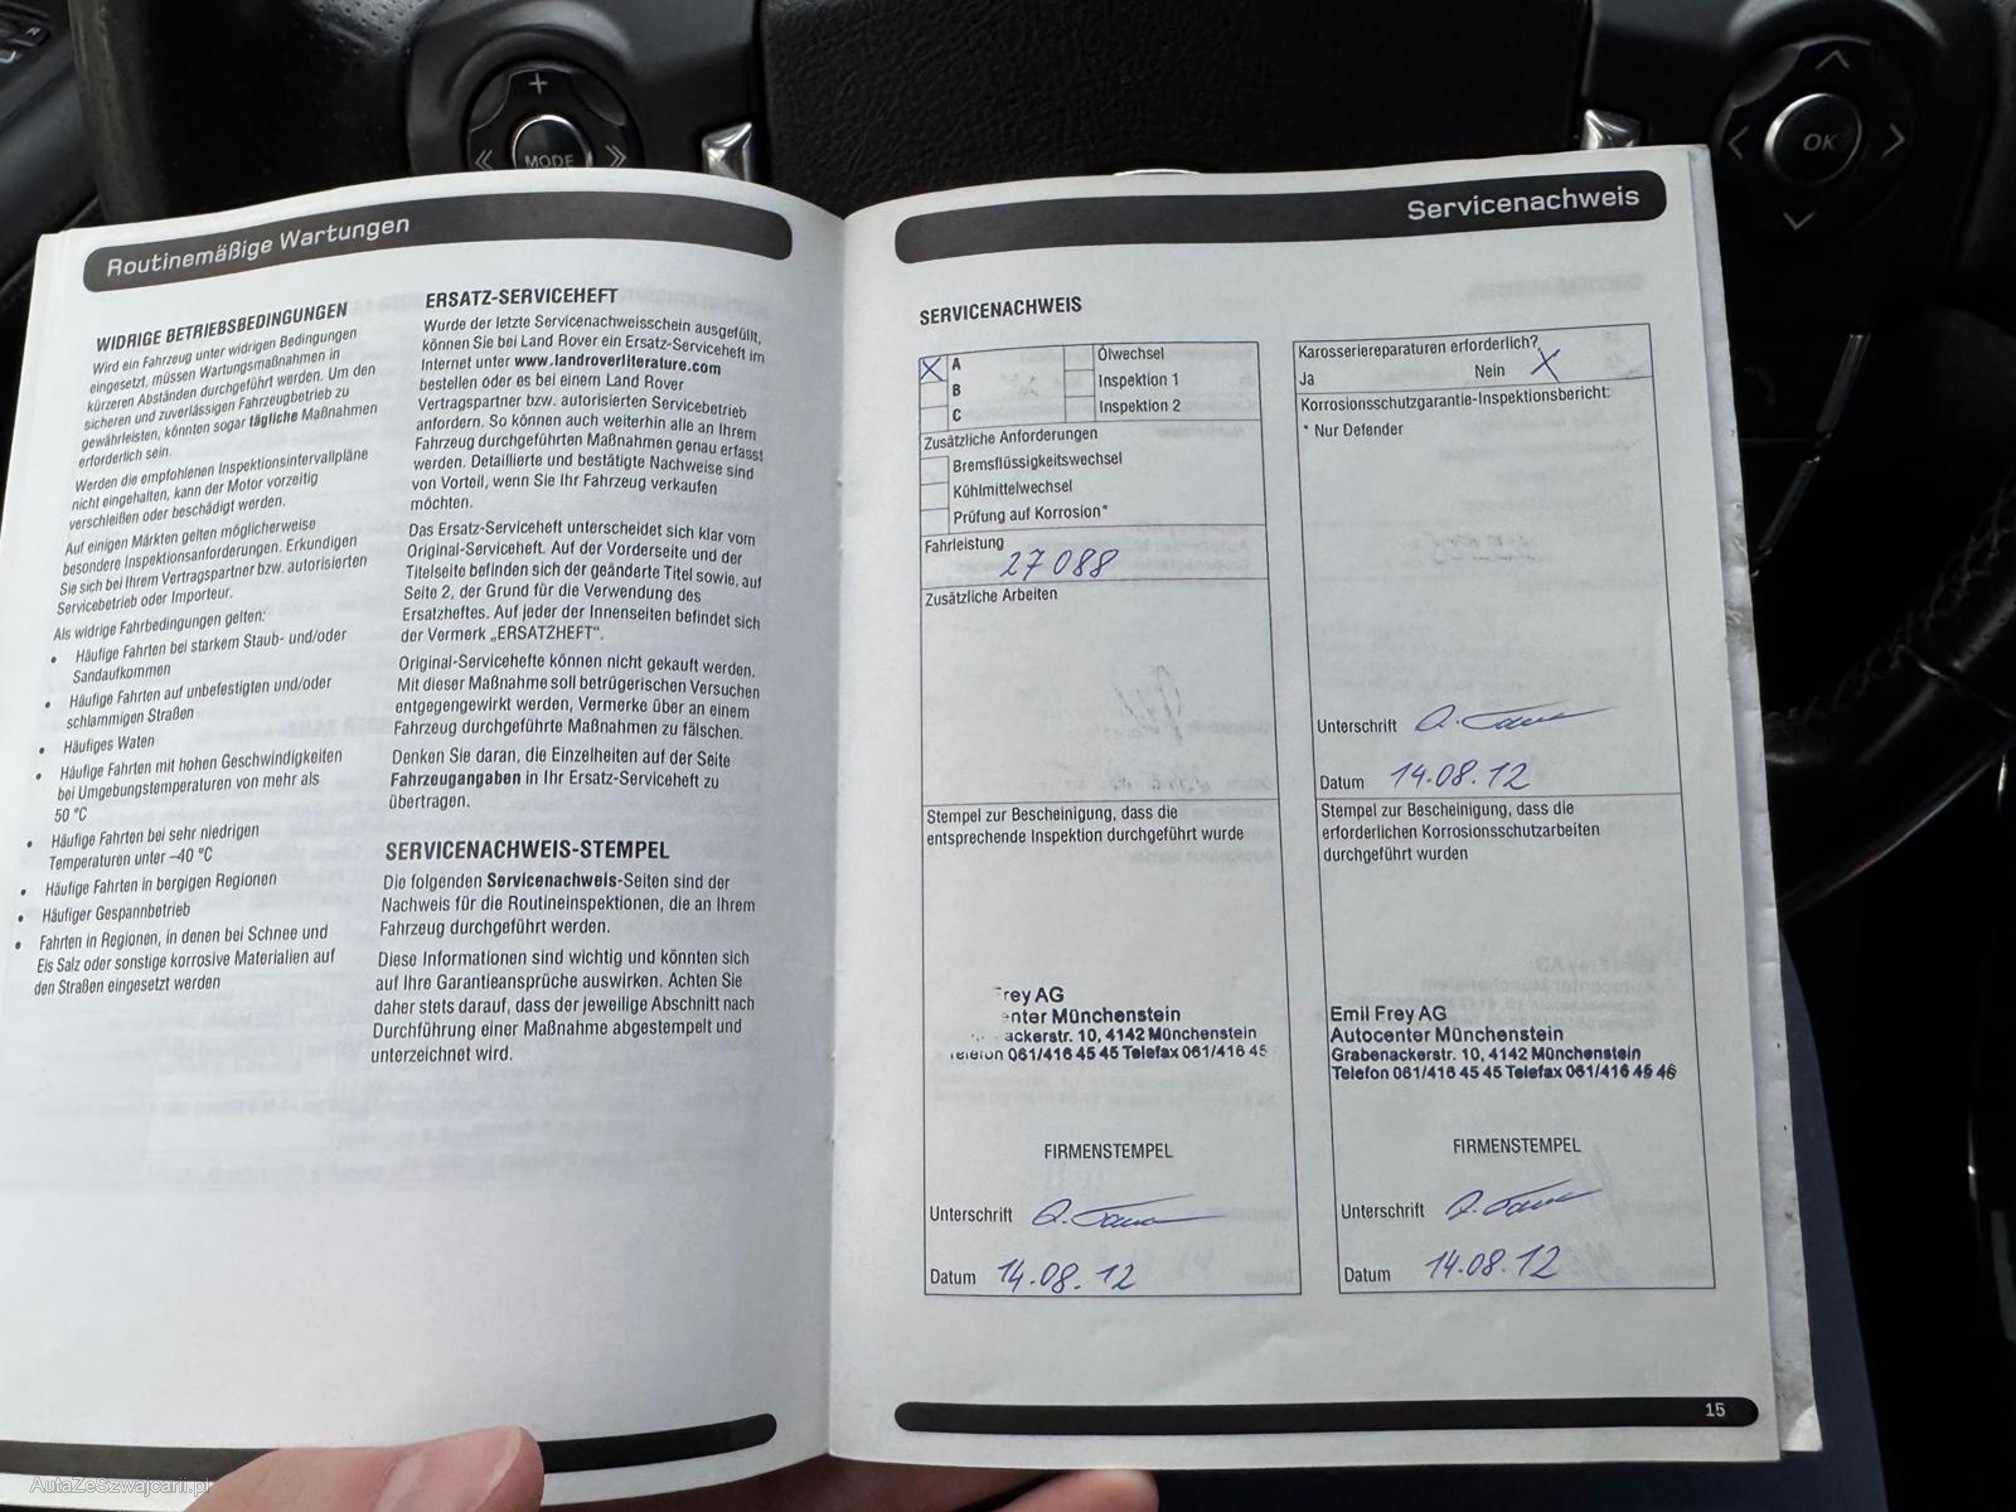 +
MODE
OK
Routinemäßige Wartungen
WIDRIGE BETRIEBSBEDINGUNGEN
Wird ein Fahrzeug unter widrigen Bedingungen
eingesetzt, müssen Wartungsmaßnahmen in
kürzeren Abständen durchgeführt werden. Um den
sicheren und zuverlässigen Fahrzeugbetrieb zu
gewährleisten, könnten sogar tägliche Maßnahmen
erforderlich sein.
Werden die empfohlenen Inspektionsintervallpläne
nicht eingehalten, kann der Motor vorzeitig
verschleißen oder beschädigt werden.
Auf einigen Märkten gelten möglicherweise
besondere Inspektionsanforderungen. Erkundigen
Sie sich bei Ihrem Vertragspartner bzw. autorisierten
Servicebetrieb oder Importeur.
Als widrige Fahrbedingungen gelten:
• Häufige Fahrten bei starkem Staub- und/oder
Sandaufkommen
• Häufige Fahrten auf unbefestigten und/oder
schlammigen Straßen
• Häufiges Waten
• Häufige Fahrten mit hohen Geschwindigkeiten
bei Umgebungstemperaturen von mehr als
50 °C
• Häufige Fahrten bei sehr niedrigen
Temperaturen unter –40 °C
• Häufige Fahrten in bergigen Regionen
• Häufiger Gespannbetrieb
• Fahrten in Regionen, in denen bei Schnee und
Eis Salz oder sonstige korrosive Materialien auf
den Straßen eingesetzt werden
ERSATZ-SERVICEHEFT
Wurde der letzte Servicenachweisschein ausgefüllt,
können Sie bei Land Rover ein Ersatz-Serviceheft im
Internet unter www.landroverliterature.com
bestellen oder es bei einem Land Rover
Vertragspartner bzw. autorisierten Servicebetrieb
anfordern. So können auch weiterhin alle an Ihrem
Fahrzeug durchgeführten Maßnahmen genau erfasst
werden. Detaillierte und bestätigte Nachweise sind
von Vorteil, wenn Sie Ihr Fahrzeug verkaufen
möchten.
Das Ersatz-Serviceheft unterscheidet sich klar vom
Original-Serviceheft. Auf der Vorderseite und der
Titelseite befinden sich der geänderte Titel sowie, auf
Seite 2, der Grund für die Verwendung des
Ersatzheftes. Auf jeder der Innenseiten befindet sich
der Vermerk „ERSATZHEFT“.
Original-Servicehefte können nicht gekauft werden.
Mit dieser Maßnahme soll betrügerischen Versuchen
entgegengewirkt werden, Vermerke über an einem
Fahrzeug durchgeführte Maßnahmen zu fälschen.
Denken Sie daran, die Einzelheiten auf der Seite
Fahrzeugangaben in Ihr Ersatz-Serviceheft zu
übertragen.
SERVICENACHWEIS-STEMPEL
Die folgenden Servicenachweis-Seiten sind der
Nachweis für die Routineinspektionen, die an Ihrem
Fahrzeug durchgeführt werden.
Diese Informationen sind wichtig und könnten sich
auf Ihre Garantieansprüche auswirken. Achten Sie
daher stets darauf, dass der jeweilige Abschnitt nach
Durchführung einer Maßnahme abgestempelt und
unterzeichnet wird.
Servicenachweis
SERVICENACHWEIS
X A Ölwechsel
B Inspektion 1
C Inspektion 2
Zusätzliche Anforderungen
Bremsflüssigkeitswechsel
Kühlmittelwechsel
Prüfung auf Korrosion*
Fahrleistung
27088
Zusätzliche Arbeiten
Stempel zur Bescheinigung, dass die
entsprechende Inspektion durchgeführt wurde
rey AG
nter Münchenstein
ackerstr. 10, 4142 Münchenstein
Telefon 061/416 45 45 Telefax 061/416 45
FIRMENSTEMPEL
Unterschrift
Datum 14.08.12
Karosseriereparaturen erforderlich?
Ja Nein X
Korrosionsschutzgarantie-Inspektionsbericht:
* Nur Defender
Unterschrift
Datum 14.08.12
Stempel zur Bescheinigung, dass die
erforderlichen Korrosionsschutzarbeiten
durchgeführt wurden
Emil Frey AG
Autocenter Münchenstein
Grabenackerstr. 10, 4142 Münchenstein
Telefon 061/416 45 45 Telefax 061/416 45 46
FIRMENSTEMPEL
Unterschrift
Datum 14.08.12
15
AutaZeSzwajcarii.pl